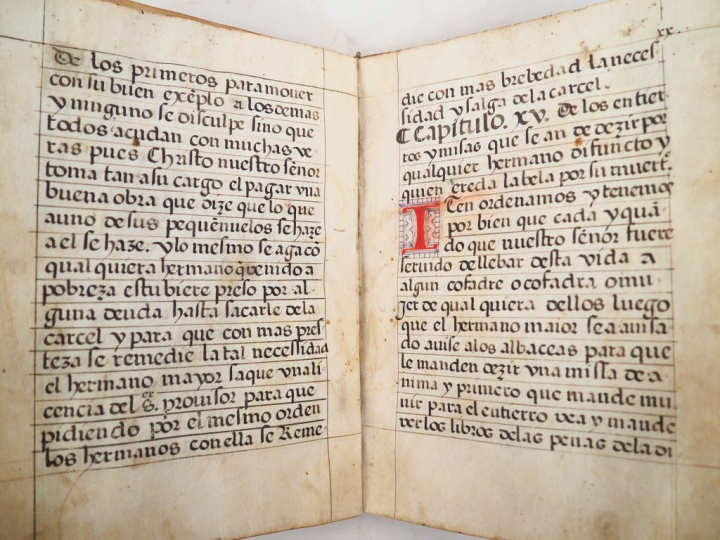 De los primeros para mouer
con su buen exẽplo a los demas
y ninguno se disculpe sino que
todos acudan con muchas ve
ras pues Christo nuestro señor
toma tan a su cargo el pagar vna
buena obra que dize que lo que
a uno de sus pequeñuelos se haze
a el se haze. y lo mesmo se aga cõ
qual quiera hermano q̃ venido a
pobreza estubiere preso por al-
guna deuda hasta sacarle dela
carcel y para que con mas pres
teza se remedie la tal necessidad
el hermano mayor saque vna li
cencia del s.ᵒʳ prouisor para que
pidiendo por el mesmo orden
los hermanos con ella se Reme-
xx.
die con mas brebedad la neces
sidad y salga de la carcel.
Capitulo. xv. De los entier-
ros y misas que se an de dezir por
qualquier hermano difuncto y
quien ereda la bela por su muert.ᵉ
ITen ordenamos y tenemos
por bien que cada y quã-
do que nuestro señor fuere
seruido de llebar desta vida a
algun cofadre o cofadra o mu-
jer de qual quiera dellos luego
que el hermano maior sea auisa
do auise a los albaceas para que
le manden dezir vna missa de a-
nima y primero que mande mu-
nir para el entierro vea y mande
ver los libros de las penas de la di